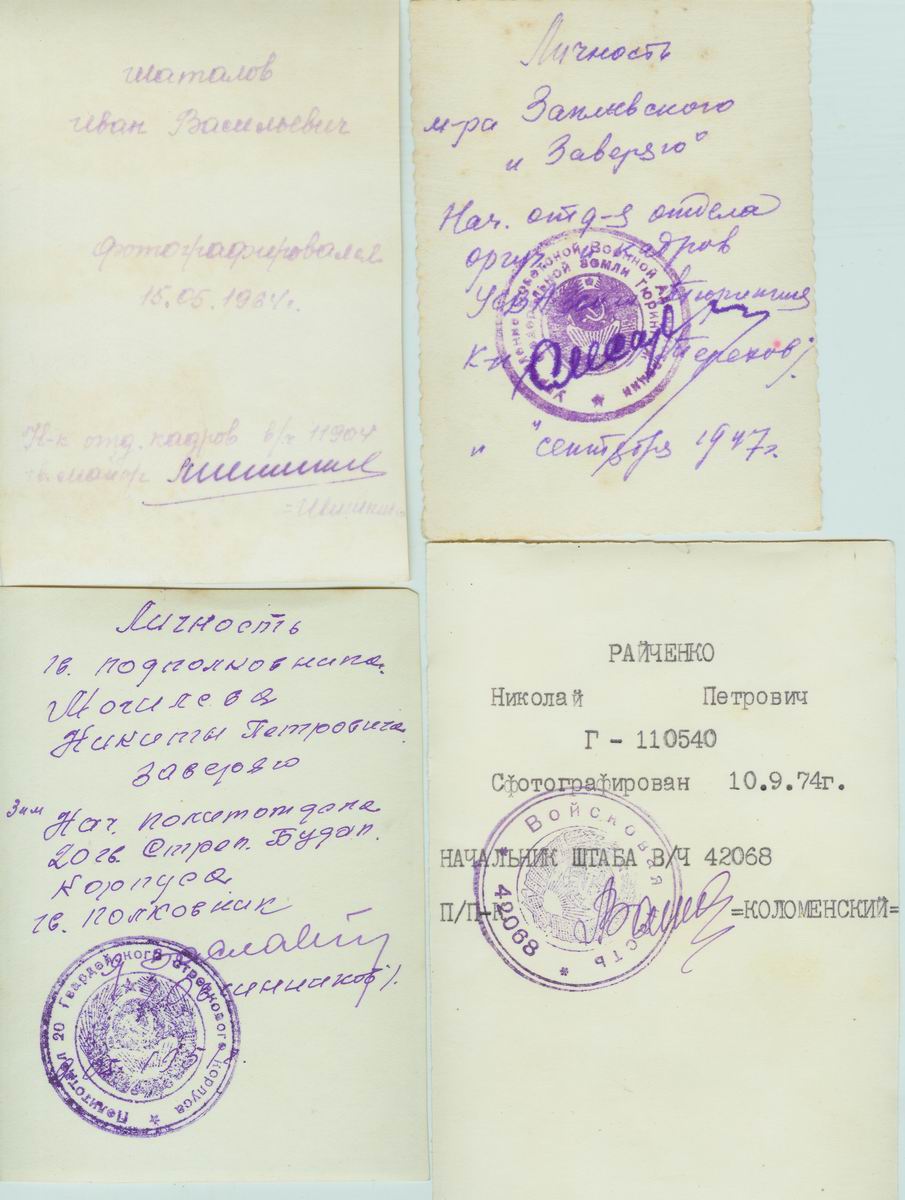 Шаталов
Иван Васильевич
Фотографировался
15.05.1964г.
Н-к отд. кадров в/ч 11904
гв. майор
Личность
м-ра
и Заверяю
Нач. отд-я отдела
оргуч. и кадров
Тюрингия
К-н Терехов
" " сентября 1947г.
Личность
гв. подполковника
Могилева
Никиты Петровича
заверяю
Зам Нач. политотдела
20 гв. Стрел. Будап.
Корпуса
гв. полковник
Политотдел 20 Гвардейского Стрелкового Корпуса
РАЙЧЕНКО
Николай Петрович
Г - 110540
Сфотографирован 10.9.74г.
НАЧАЛЬНИК ШТАБА В/Ч 42068
П/П-К =КОЛОМЕНСКИЙ=
Войсковая часть 42068